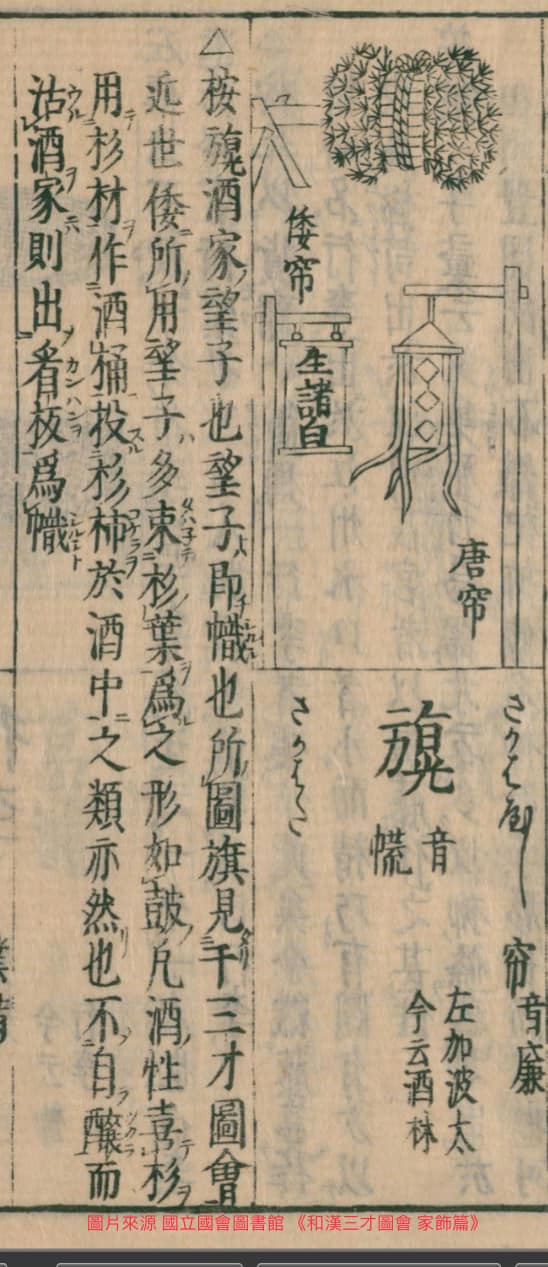 唐帘
生諸白
倭帘
さかばやし
帘 音廉
音慌
左加波太
今云酒林
さかはた
△按酒家望子也望子即幟也所圖旗見于三才圖會
近世倭所用望子多束杉葉爲之形如鼓凡酒性喜杉
用杉材作酒桶投杉杮於酒中之類亦然也不自釀而
沽酒家則出看板爲幟
圖片來源 國立國會圖書館 《和漢三才圖會 家飾篇》